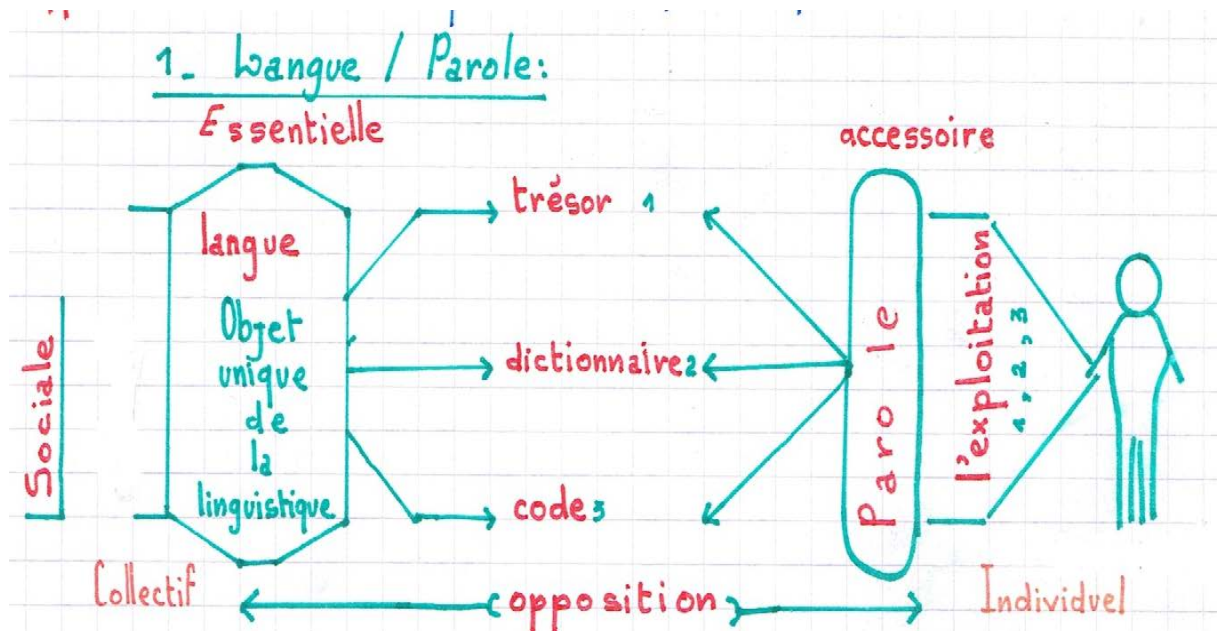 1- Langue / Parole:
Essentielle
accessoire
langue
Objet
unique
de
la
linguistique
trésor 1
dictionnaire 2
code 3
Parole
l'exploitation
1, 2, 3
Sociale
Collectif
opposition
Individuel